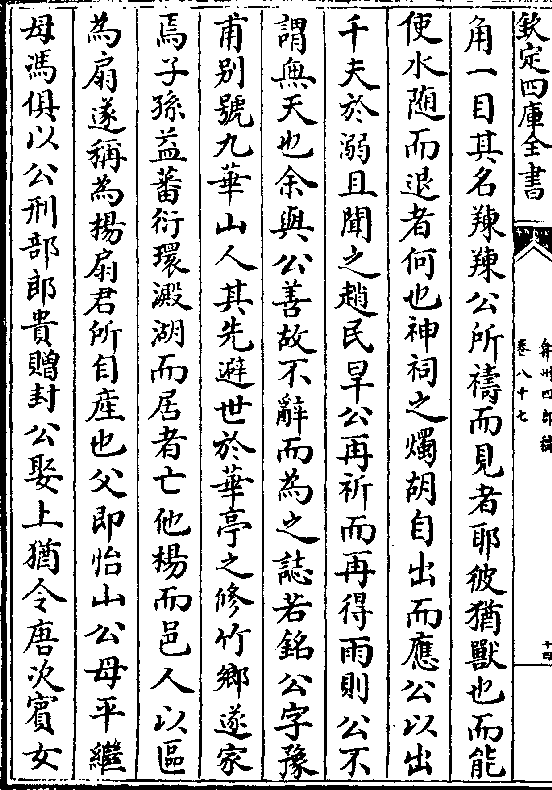 欽定四庫全書
弇州四部稿
卷八十七
十四
角一目其名𦍙𦍙公所禱而見者耶彼猶獸也而能
使水随而退者何也神祠之燭胡自出而應公以出
千夫於溺且聞之趙民旱公再祈而再得雨則公不
謂無天也余與公善故不辭而為之誌若銘公字豫
甫别號九華山人其先避世於華亭之修竹鄉遂家
焉子孫益蕃衍環澱湖而居者亡他楊而邑人以區
為扇遂稱為楊扇君所自産也父即怡山公母平繼
母馮俱以公刑部郎貴贈封公娶上猶令唐次賓女